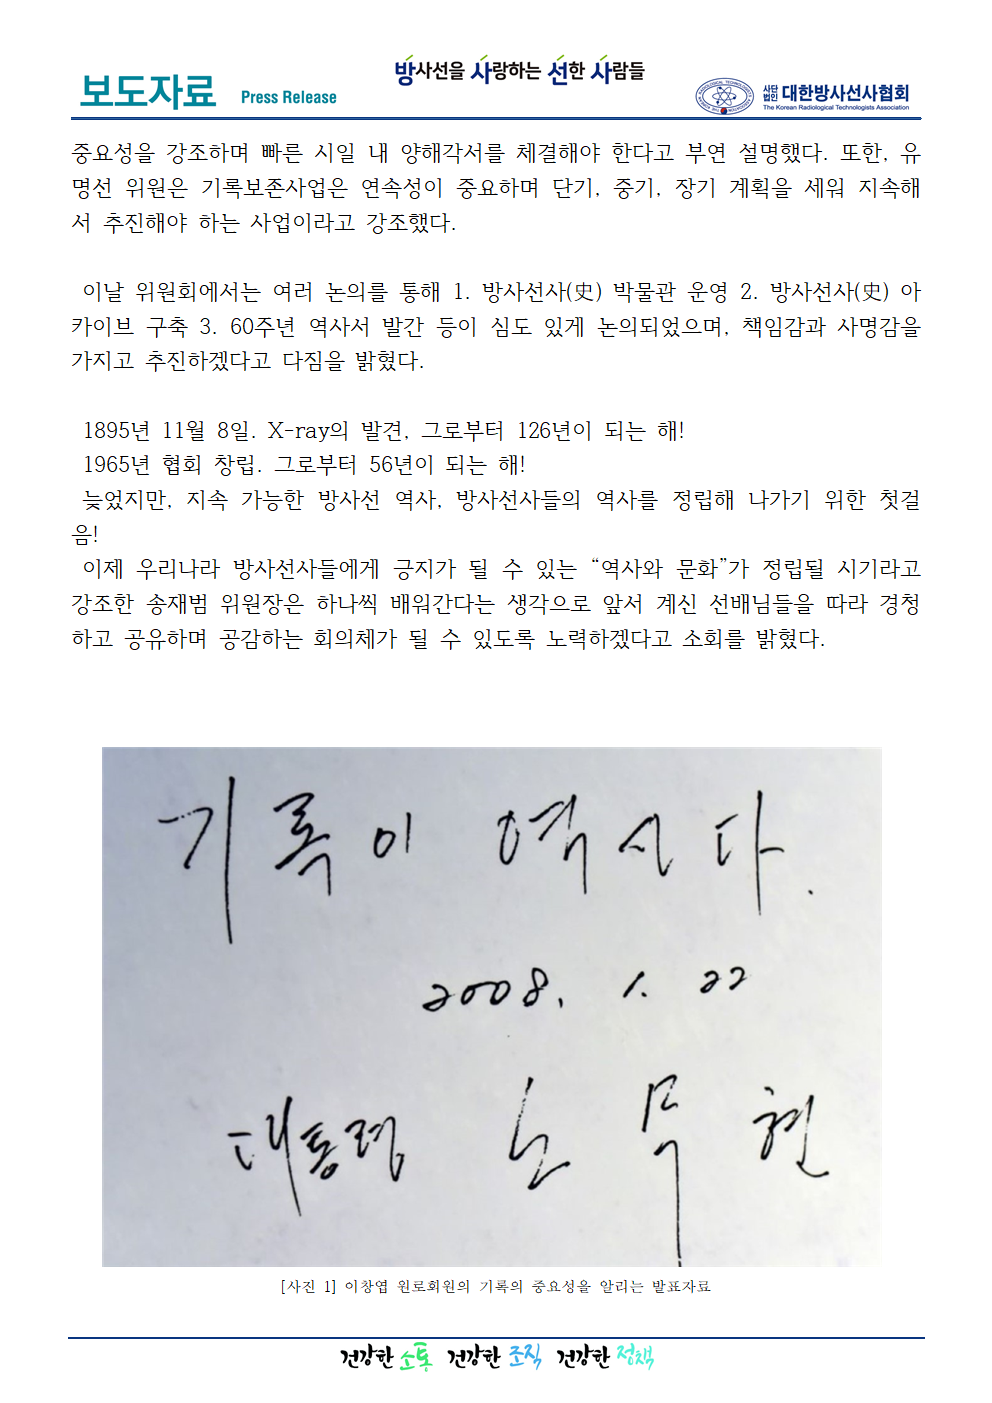 보도자료 Press Release
방사선을 사랑하는 선한 사람들
사단법인 대한방사선사협회
The Korean Radiological Technologists Association
중요성을 강조하며 빠른 시일 내 양해각서를 체결해야 한다고 부연 설명했다. 또한, 유
명선 위원은 기록보존사업은 연속성이 중요하며 단기, 중기, 장기 계획을 세워 지속해
서 추진해야 하는 사업이라고 강조했다.
이날 위원회에서는 여러 논의를 통해 1. 방사선사(史) 박물관 운영 2. 방사선사(史) 아
카이브 구축 3. 60주년 역사서 발간 등이 심도 있게 논의되었으며, 책임감과 사명감을
가지고 추진하겠다고 다짐을 밝혔다.
1895년 11월 8일. X-ray의 발견, 그로부터 126년이 되는 해!
1965년 협회 창립. 그로부터 56년이 되는 해!
늦었지만, 지속 가능한 방사선 역사, 방사선사들의 역사를 정립해 나가기 위한 첫걸
음!
이제 우리나라 방사선사들에게 긍지가 될 수 있는 “역사와 문화”가 정립될 시기라고
강조한 송재범 위원장은 하나씩 배워간다는 생각으로 앞서 계신 선배님들을 따라 경청
하고 공유하며 공감하는 회의체가 될 수 있도록 노력하겠다고 소회를 밝혔다.
기록이 역사다.
2008. 1. 22
대통령 노무현
[사진 1] 이창엽 원로회원의 기록의 중요성을 알리는 발표자료
건강한 소통 건강한 조직 건강한 정책